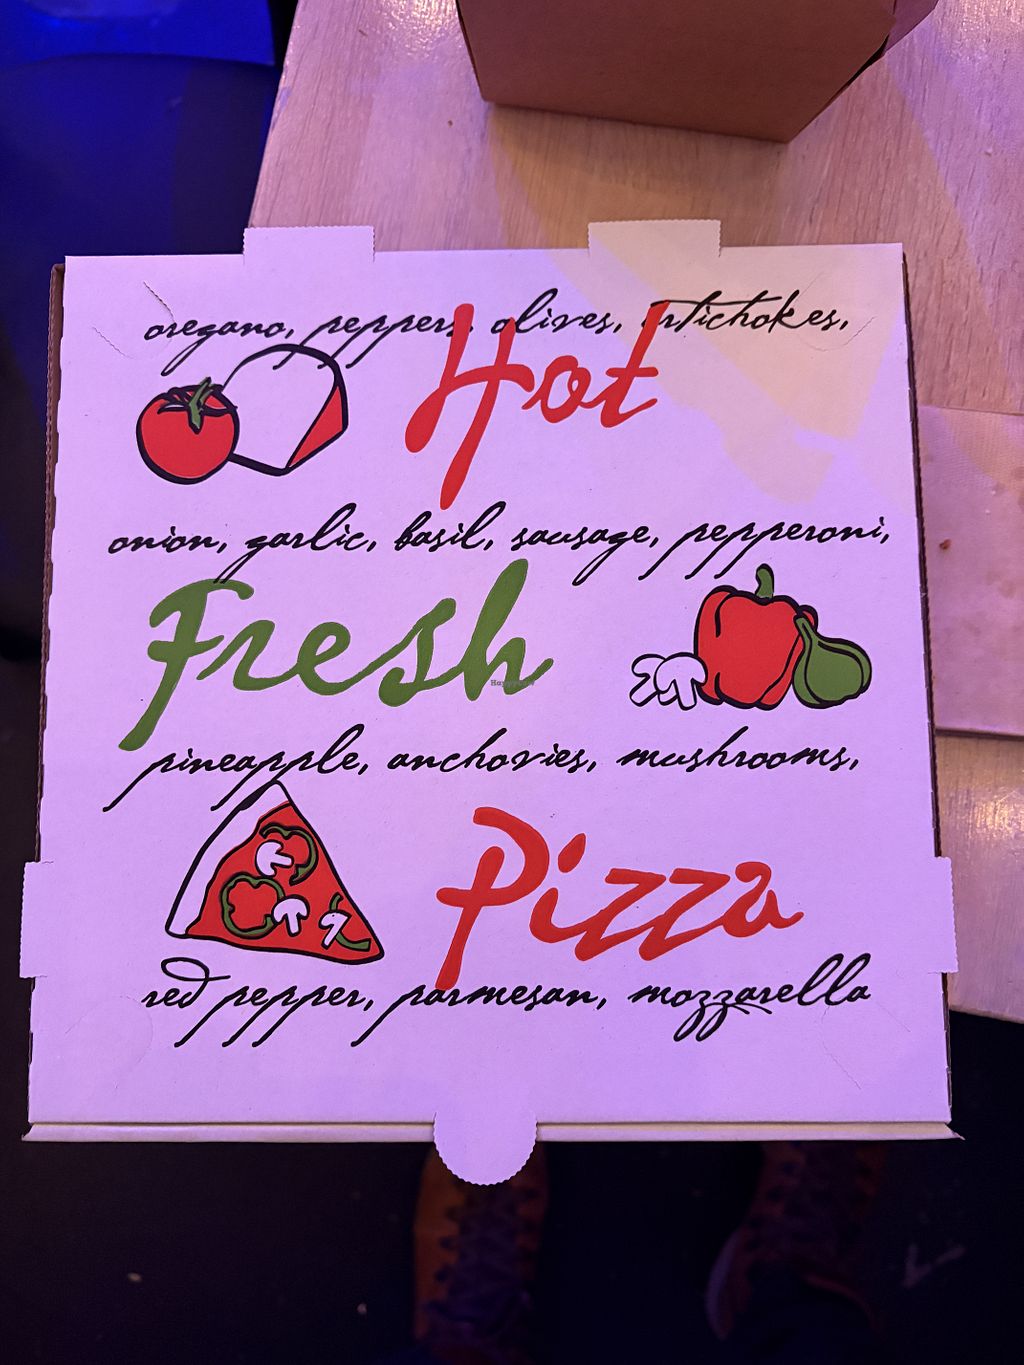 oregano, peppers, olives, artichokes,
Hot
onion, garlic, basil, sausage, pepperoni,
Fresh
pineapple, anchovies, mushrooms,
Pizza
red pepper, parmesan, mozzarella